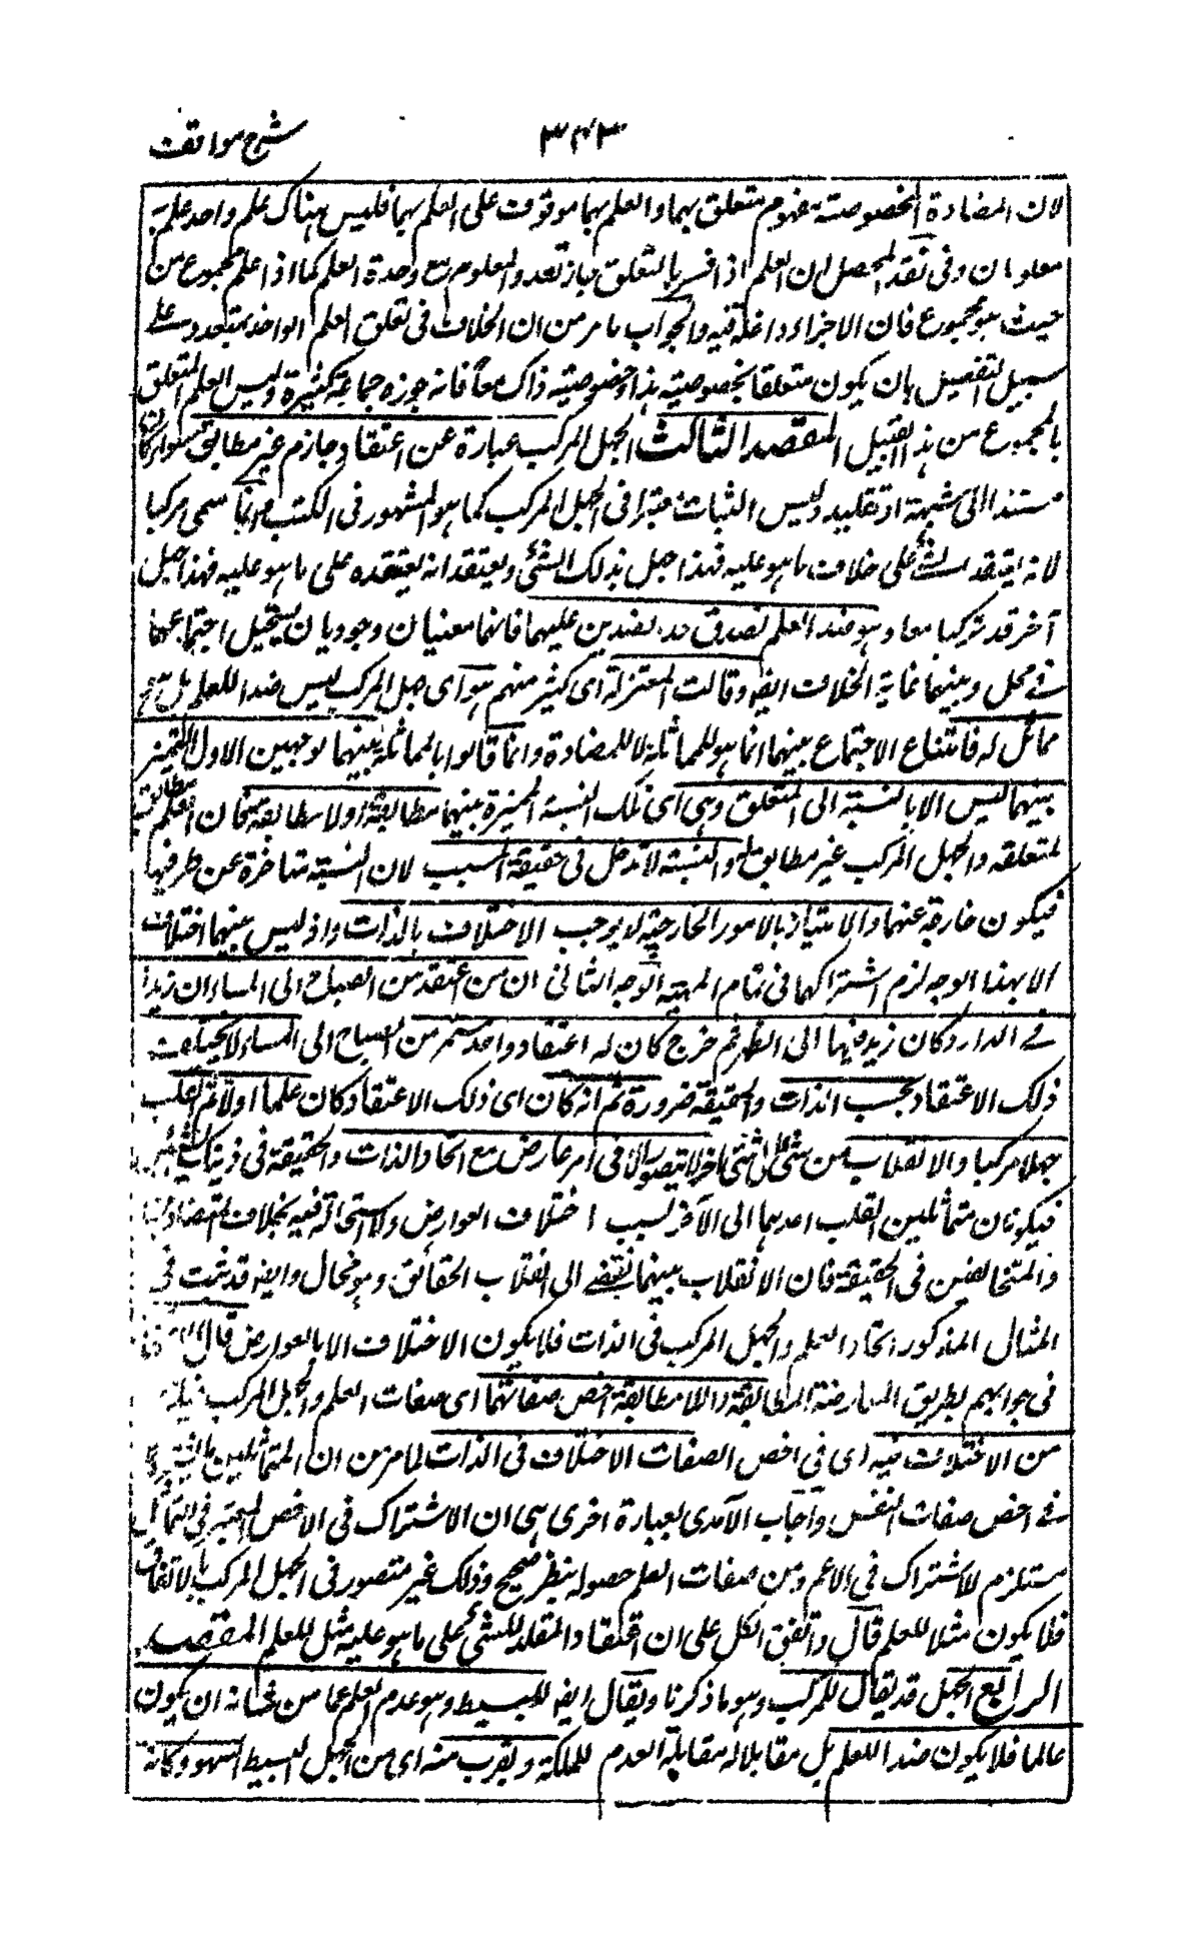 شرح مواقف
٣٤٣
لان المضادة المخصوصة مفهوم متعلق بهما والعلم بها موقوف على العلم بهما فليس هناك علم واحد علم به
معلومان وفى نقد المحصل ان العلم اذا فسر بالتعلق جاز تعدد المعلوم مع وحدة العلم كما اذا علم مجموع من
حيث هو مجموع فان الاجزاء داخلة فيه والجواب ما مر من ان الخلاف فى تعلق العلم الواحد بمتعدد على
سبيل التفصيل بان يكون متعلقا بخصوصية هذا وخصوصية ذاك معا فانه جوزه جماعة كثيرة وليس العلم المتعلق
بالمجموع من هذا القبيل المقصد الثالث الجهل المركب عبارة عن اعتقاد جازم غير مطابق سواء كان
مستندا الى شبهة او تقليد وليس الثبات معتبرا فى الجهل المركب كما هو المشهور فى الكتب وانما سمى مركبا
لانه يعتقد الشئ على خلاف ما هو عليه فهذا جهل بذلك الشئ ويعتقد انه يعتقده على ما هو عليه فهذا جهل
آخر قد تركبا معا وهو ضد العلم لصدق حد الضدين عليهما فانهما معنيان وجوديان يستحيل اجتماعهما
فى محل وبينهما غاية الخلاف ايضا وقالت المعتزلة اى كثير منهم هو اى جهل المركب ليس ضدا للعلم بل هو
مماثل له فامتناع الاجتماع بينهما انما هو للمماثلة لا للمضادة وانما قالوا بالمماثلة بينهما لوجهين الاول التميز
بينهما ليس الا بالنسبة الى المتعلق وهى اى تلك النسبة المميزة بينهما مطابقة او لا مطابقة فان العلم مطابق
لمتعلقه والجهل المركب غير مطابق له والنسبة لا تدخل فى حقيقة المنتسب لان النسبة متاخرة عن طرفيها
فيكون خارجة عنهما والامتياز بالامور الخارجية لا يوجب الاختلاف بالذات واذ ليس بينهما اختلاف
الا بهذا الوجه لزم اشتراكهما فى تمام المهية الوجه الثانى ان من اعتقد من الصباح الى المساء ان زيدا
فى الدار وكان زيد فيها الى الظهر ثم خرج كان له اعتقاد واحد مستمر من الصباح الى المساء لا يختلف
ذلك الاعتقاد بحسب الذات والحقيقة ضرورة ثم انه كان اى ذلك الاعتقاد كان علما اولا ثم انقلب
جهلا مركبا والانقلاب من شئ الى شئ آخر لا يتصور الا فى امر عارض مع اتحاد الذات والحقيقة فى ذينك الشيئين
فيكونان متماثلين انقلب احدهما الى الآخر بسبب اختلاف العوارض ولا استحالة فيه بخلاف المتضادين
والمتخالفين فى الحقيقة فان الانقلاب بينهما يفضى الى انقلاب الحقائق وهو محال وايضا قد ثبت فى
المثال المذكور اتحاد العلم والجهل المركب فى الذات فلا يكون الاختلاف الا بالعوارض قال
فى جوابهم بطريق المعارضة المطابقة واللامطابقة اخص صفاتهما اى صفات العلم والجهل المركب فيلزم
من الاختلاف فيه اى فى اخص الصفات الاختلاف فى الذات لما مر من ان المتماثلين
فى اخص صفات النفس واجاب الآمدى بعبارة اخرى هى ان الاشتراك فى الاخص المعتبر فى التماثل
يستلزم الاشتراك فى الاعم ومن صفات العلم حصوله بنظر صحيح وذلك غير متصور فى الجهل المركب بالاتفاق
فلا يكون مثلا للعلم قال واتفق الكل على ان اعتقاد المقلد للشئ على ما هو عليه مثل للعلم المقصد
الرابع الجهل قد يقال للمركب وهو ما ذكرنا ويقال ايضا للبسيط وهو عدم العلم عما من شانه ان يكون
عالما فلا يكون ضدا للعلم بل مقابلا له مقابلة العدم للملكة ويقرب منه اى من الجهل البسيط السهو وكانه